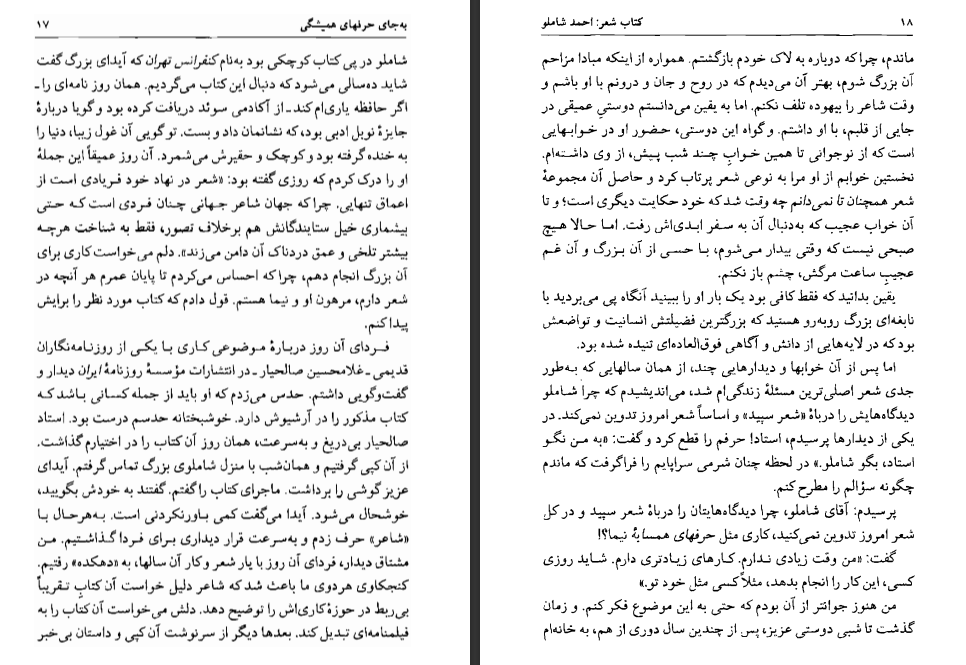 به‌جای حرفهای همیشگی ۱۷
شاملو در پی کتاب کوچکی بود به‌نام کنفرانس تهران که آیدای بزرگ گفت
شاید ده‌سالی می‌شود که دنبال این کتاب می‌گردیم. همان روز نامه‌ای را ـ
اگر حافظه یاری‌ام کند ـ از آکادمی سوئد دریافت کرده بود و گویا دربارهٔ
جایزهٔ نوبل ادبی بود، که نشانمان داد و بست. تو گویی آن غول زیبا، دنیا را
به خنده گرفته بود و کوچک و حقیرش می‌شمرد. آن روز عمیقاً این جملهٔ
او را درک کردم که روزی گفته بود: «شعر در نهاد خود فریادی است از
اعماق تنهایی. چرا که جهان شاعر جهانی چنان فردی است که حتی
بیشماری خیل ستایندگانش هم برخلاف تصور، فقط به شناخت هرچه
بیشتر تلخی و عمق دردناک آن دامن می‌زند». دلم می‌خواست کاری برای
آن بزرگ انجام دهم، چرا که احساس می‌کردم تا پایان عمرم هر آنچه در
شعر دارم، مرهون او و نیما هستم. قول دادم که کتاب مورد نظر را برایش
پیدا کنم.
فردای آن روز دربارهٔ موضوعی کاری با یکی از روزنامه‌نگاران
قدیمی ـ غلامحسین صالحیار ـ در انتشارات مؤسسهٔ روزنامهٔ ایران دیدار و
گفت‌وگویی داشتم. حدس می‌زدم که او باید از جمله کسانی باشد که
کتاب مذکور را در آرشیوش دارد. خوشبختانه حدسم درست بود. استاد
صالحیار بی‌دریغ و به‌سرعت، همان روز آن کتاب را در اختیارم گذاشت.
از آن کپی گرفتیم و همان‌شب با منزل شاملوی بزرگ تماس گرفتم. آیدای
عزیز گوشی را برداشت. ماجرای کتاب را گفتم. گفتند به خودش بگویید،
خوشحال می‌شود. آیدا می‌گفت کمی باورنکردنی است. به‌هرحال با
«شاعر» حرف زدم و به‌سرعت قرار دیداری برای فردا گذاشتیم. من
مشتاق دیدار، فردای آن روز با یار شعر و کار آن سالها، به «دهکده» رفتیم.
کنجکاوی هردوی ما باعث شد که شاعر دلیل خواست آن کتابِ تقریباً
بی‌ربط در حوزهٔ کاری‌اش را توضیح دهد. دلش می‌خواست آن کتاب را به
فیلمنامه‌ای تبدیل کند. بعدها دیگر از سرنوشت آن کپی و داستان بی‌خبر
۱۸ کتاب شعر: احمد شاملو
ماندم، چرا که دوباره به لاک خودم بازگشتم. همواره از اینکه مبادا مزاحم
آن بزرگ شوم، بهتر آن می‌دیدم که در روح و جان و درونم با او باشم و
وقت شاعر را بیهوده تلف نکنم. اما به یقین می‌دانستم دوستیِ عمیقی در
جایی از قلبم، با او داشتم. و گواه این دوستی، حضور او در خوابهایی
است که از نوجوانی تا همین خوابِ چند شب پیش، از وی داشته‌ام.
نخستین خوابم از او مرا به نوعی شعر پرتاب کرد و حاصل آن مجموعهٔ
شعر همچنان تا نمی‌دانم چه وقت شد که خود حکایت دیگری است؛ و تا
آن خواب عجیب که به‌دنبال آن به سفر ابدی‌اش رفت. اما حالا هیچ
صبحی نیست که وقتی بیدار می‌شوم، با حسی از آن بزرگ و آن غم
عجیبِ ساعت مرگش، چشم باز نکنم.
یقین بدانید که فقط کافی بود یک بار او را ببینید آنگاه پی می‌بردید با
نابغه‌ای بزرگ روبه‌رو هستید که بزرگترین فضیلتش انسانیت و تواضعش
بود که در لایه‌هایی از دانش و آگاهی فوق‌العاده‌ای تنیده شده بود.
اما پس از آن خوابها و دیدارهایی چند، از همان سالهایی که به‌طور
جدی شعر اصلی‌ترین مسئلهٔ زندگی‌ام شد، می‌اندیشیدم که چرا شاملو
دیدگاه‌هایش را دربارهٔ «شعر سپید» و اساساً شعر امروز تدوین نمی‌کند. در
یکی از دیدارها پرسیدم، استاد! حرفم را قطع کرد و گفت: «به من نگو
استاد، بگو شاملو.» در لحظه چنان شرمی سراپایم را فراگرفت که ماندم
چگونه سؤالم را مطرح کنم.
پرسیدم: آقای شاملو، چرا دیدگاه‌هایتان را دربارهٔ شعر سپید و در کل
شعر امروز تدوین نمی‌کنید، کاری مثل حرفهای همسایهٔ نیما؟!
گفت: «من وقت زیادی ندارم. کارهای زیادتری دارم. شاید روزی
کسی، این کار را انجام بدهد، مثلاً کسی مثل خود تو.»
من هنوز جوانتر از آن بودم که حتی به این موضوع فکر کنم. و زمان
گذشت تا شبی دوستی عزیز، پس از چندین سال دوری از هم، به خانه‌ام